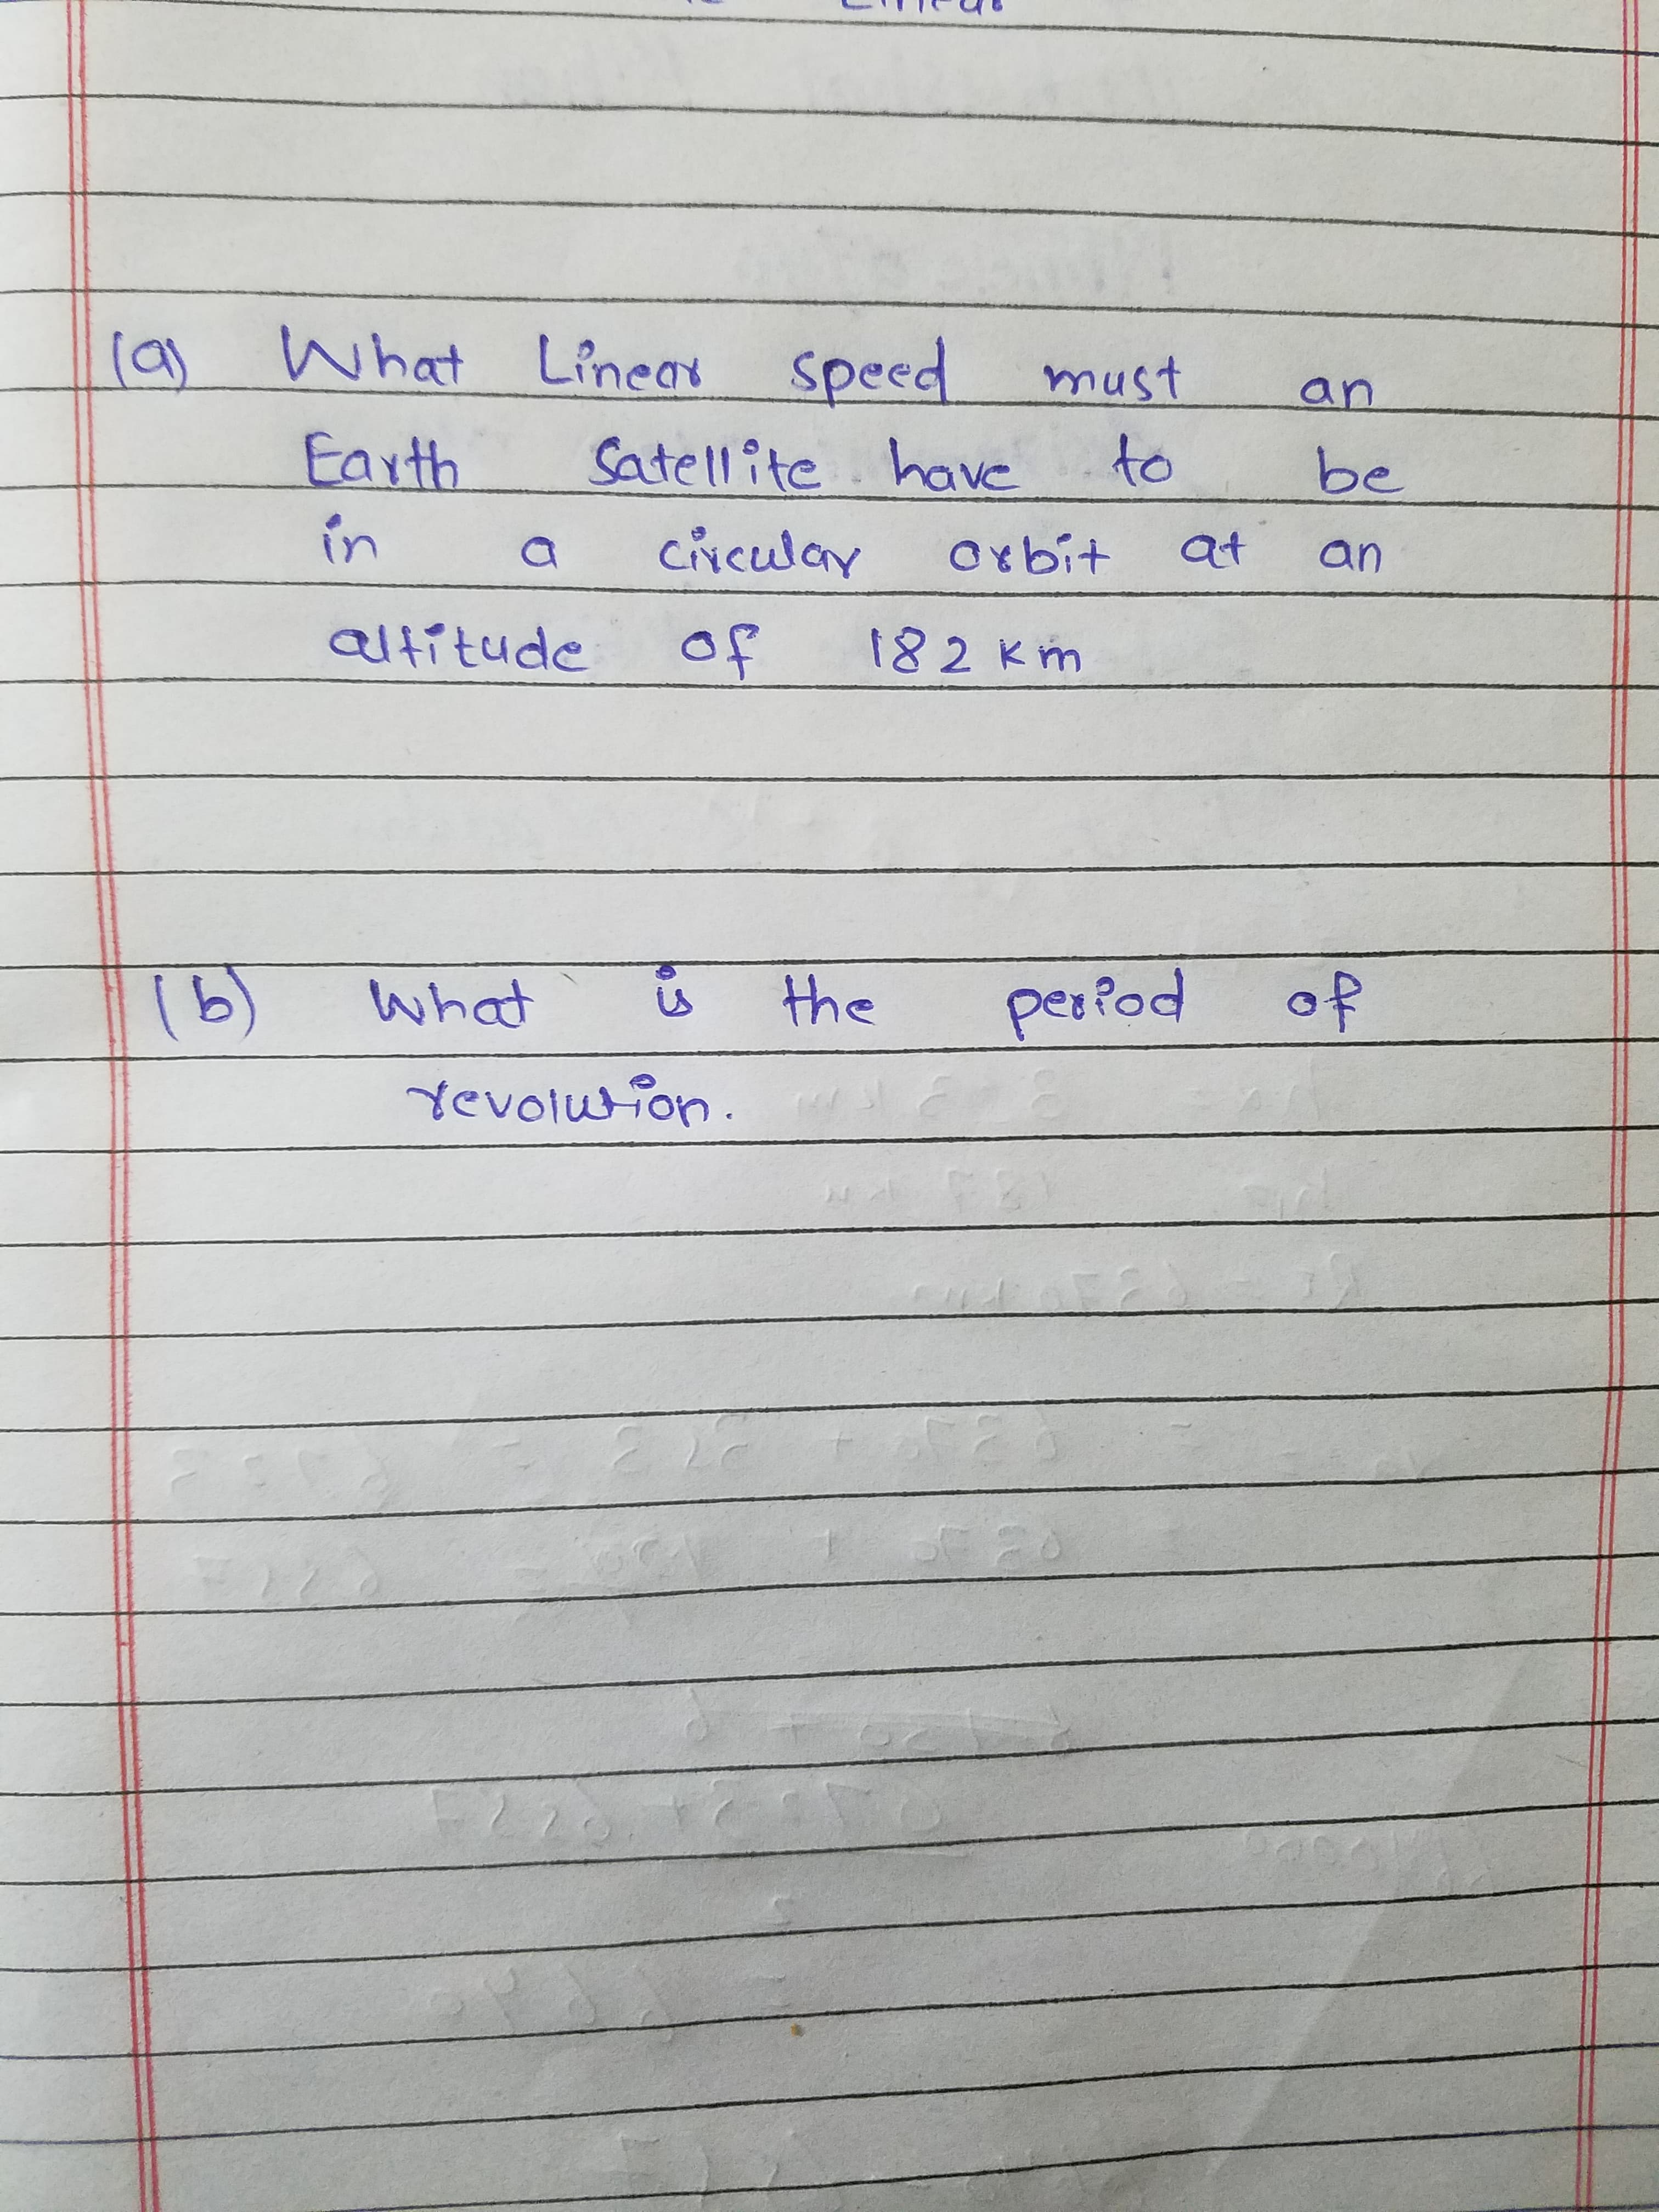 (a) What Linear speed must an
Earth Satellite have to be
in a circular orbit at an
altitude of 182 km
(b) What is the period of
revolution.